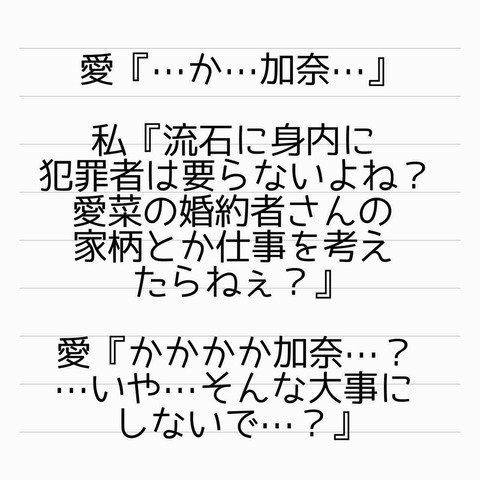 愛『…か…加奈…』
私『流石に身内に
犯罪者は要らないよね？
愛菜の婚約者さんの
家柄とか仕事を考え
たらねぇ？』
愛『かかかか加奈…？
…いや…そんな大事に
しないで…？』